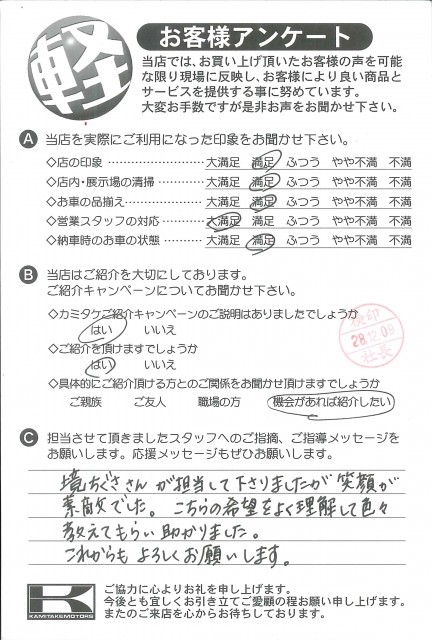 軽
お客様アンケート
当店では、お買い上げ頂いたお客様の声を可能
な限り現場に反映し、お客様により良い商品と
サービスを提供する事に努めています。
大変お手数ですが是非お声をお聞かせ下さい。
A 当店を実際にご利用になった印象をお聞かせ下さい。
◇店の印象 ………………… 大満足 満足 ふつう やや不満 不満
◇店内・展示場の清掃 ……… 大満足 満足 ふつう やや不満 不満
◇お車の品揃え ……………… 大満足 満足 ふつう やや不満 不満
◇営業スタッフの対応 ……… 大満足 満足 ふつう やや不満 不満
◇納車時のお車の状態 ……… 大満足 満足 ふつう やや不満 不満
B 当店はご紹介を大切にしております。
ご紹介キャンペーンについてお聞かせ下さい。
◇カミタケご紹介キャンペーンのご説明はありましたでしょうか
はい いいえ
◇ご紹介を頂けますでしょうか
はい いいえ
◇具体的にご紹介頂ける方とのご関係をお聞かせ頂けますでしょうか
ご親族 ご友人 職場の方 機会があれば紹介したい
検印
28.12.09
社長
C 担当させて頂きましたスタッフへのご指摘、ご指導メッセージを
お願いします。応援メッセージもぜひお願いします。
境ちぐささんが担当して下さりましたが笑顔が
素敵でした。こちらの希望をよく理解して色々
教えてもらい助かりました。
これからもよろしくお願いします。
K
KAMITAKEMOTORS
ご協力に心よりお礼を申し上げます。
今後とも宜しくお引き立てご愛顧の程お願い申し上げます。
またのご来店を心からお待ちしております。